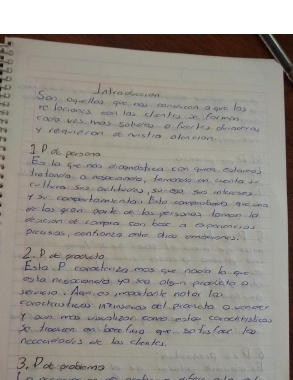 Introduccion
Son aquellas que nos conducen a que las
relaciones con los clientes se forman
cada vez mas solidas o fuertes duraderas
y requieren de nuestra atencion.
1 P de persona
Es la que nos diagnostica con quien estamos
tratando o negociando, teniendo en cuenta su
cultura sus actitudes, sus intereses
y su comportamiento. Esta comprobado que una
de las gran parte de las personas toman la
decision de compra con base a experiencias
confianza entre otras emociones.
2. P de producto
Esta P caracteriza mas que nada lo que
esta negociando ya sea algun producto o
servicio. importante notar las
caracteristicas del producto a vender
y aun mas visualizar como estas caracteristicas
se traducen en beneficios que satisfacer las
necesidades de los clientes.
3. P de problema